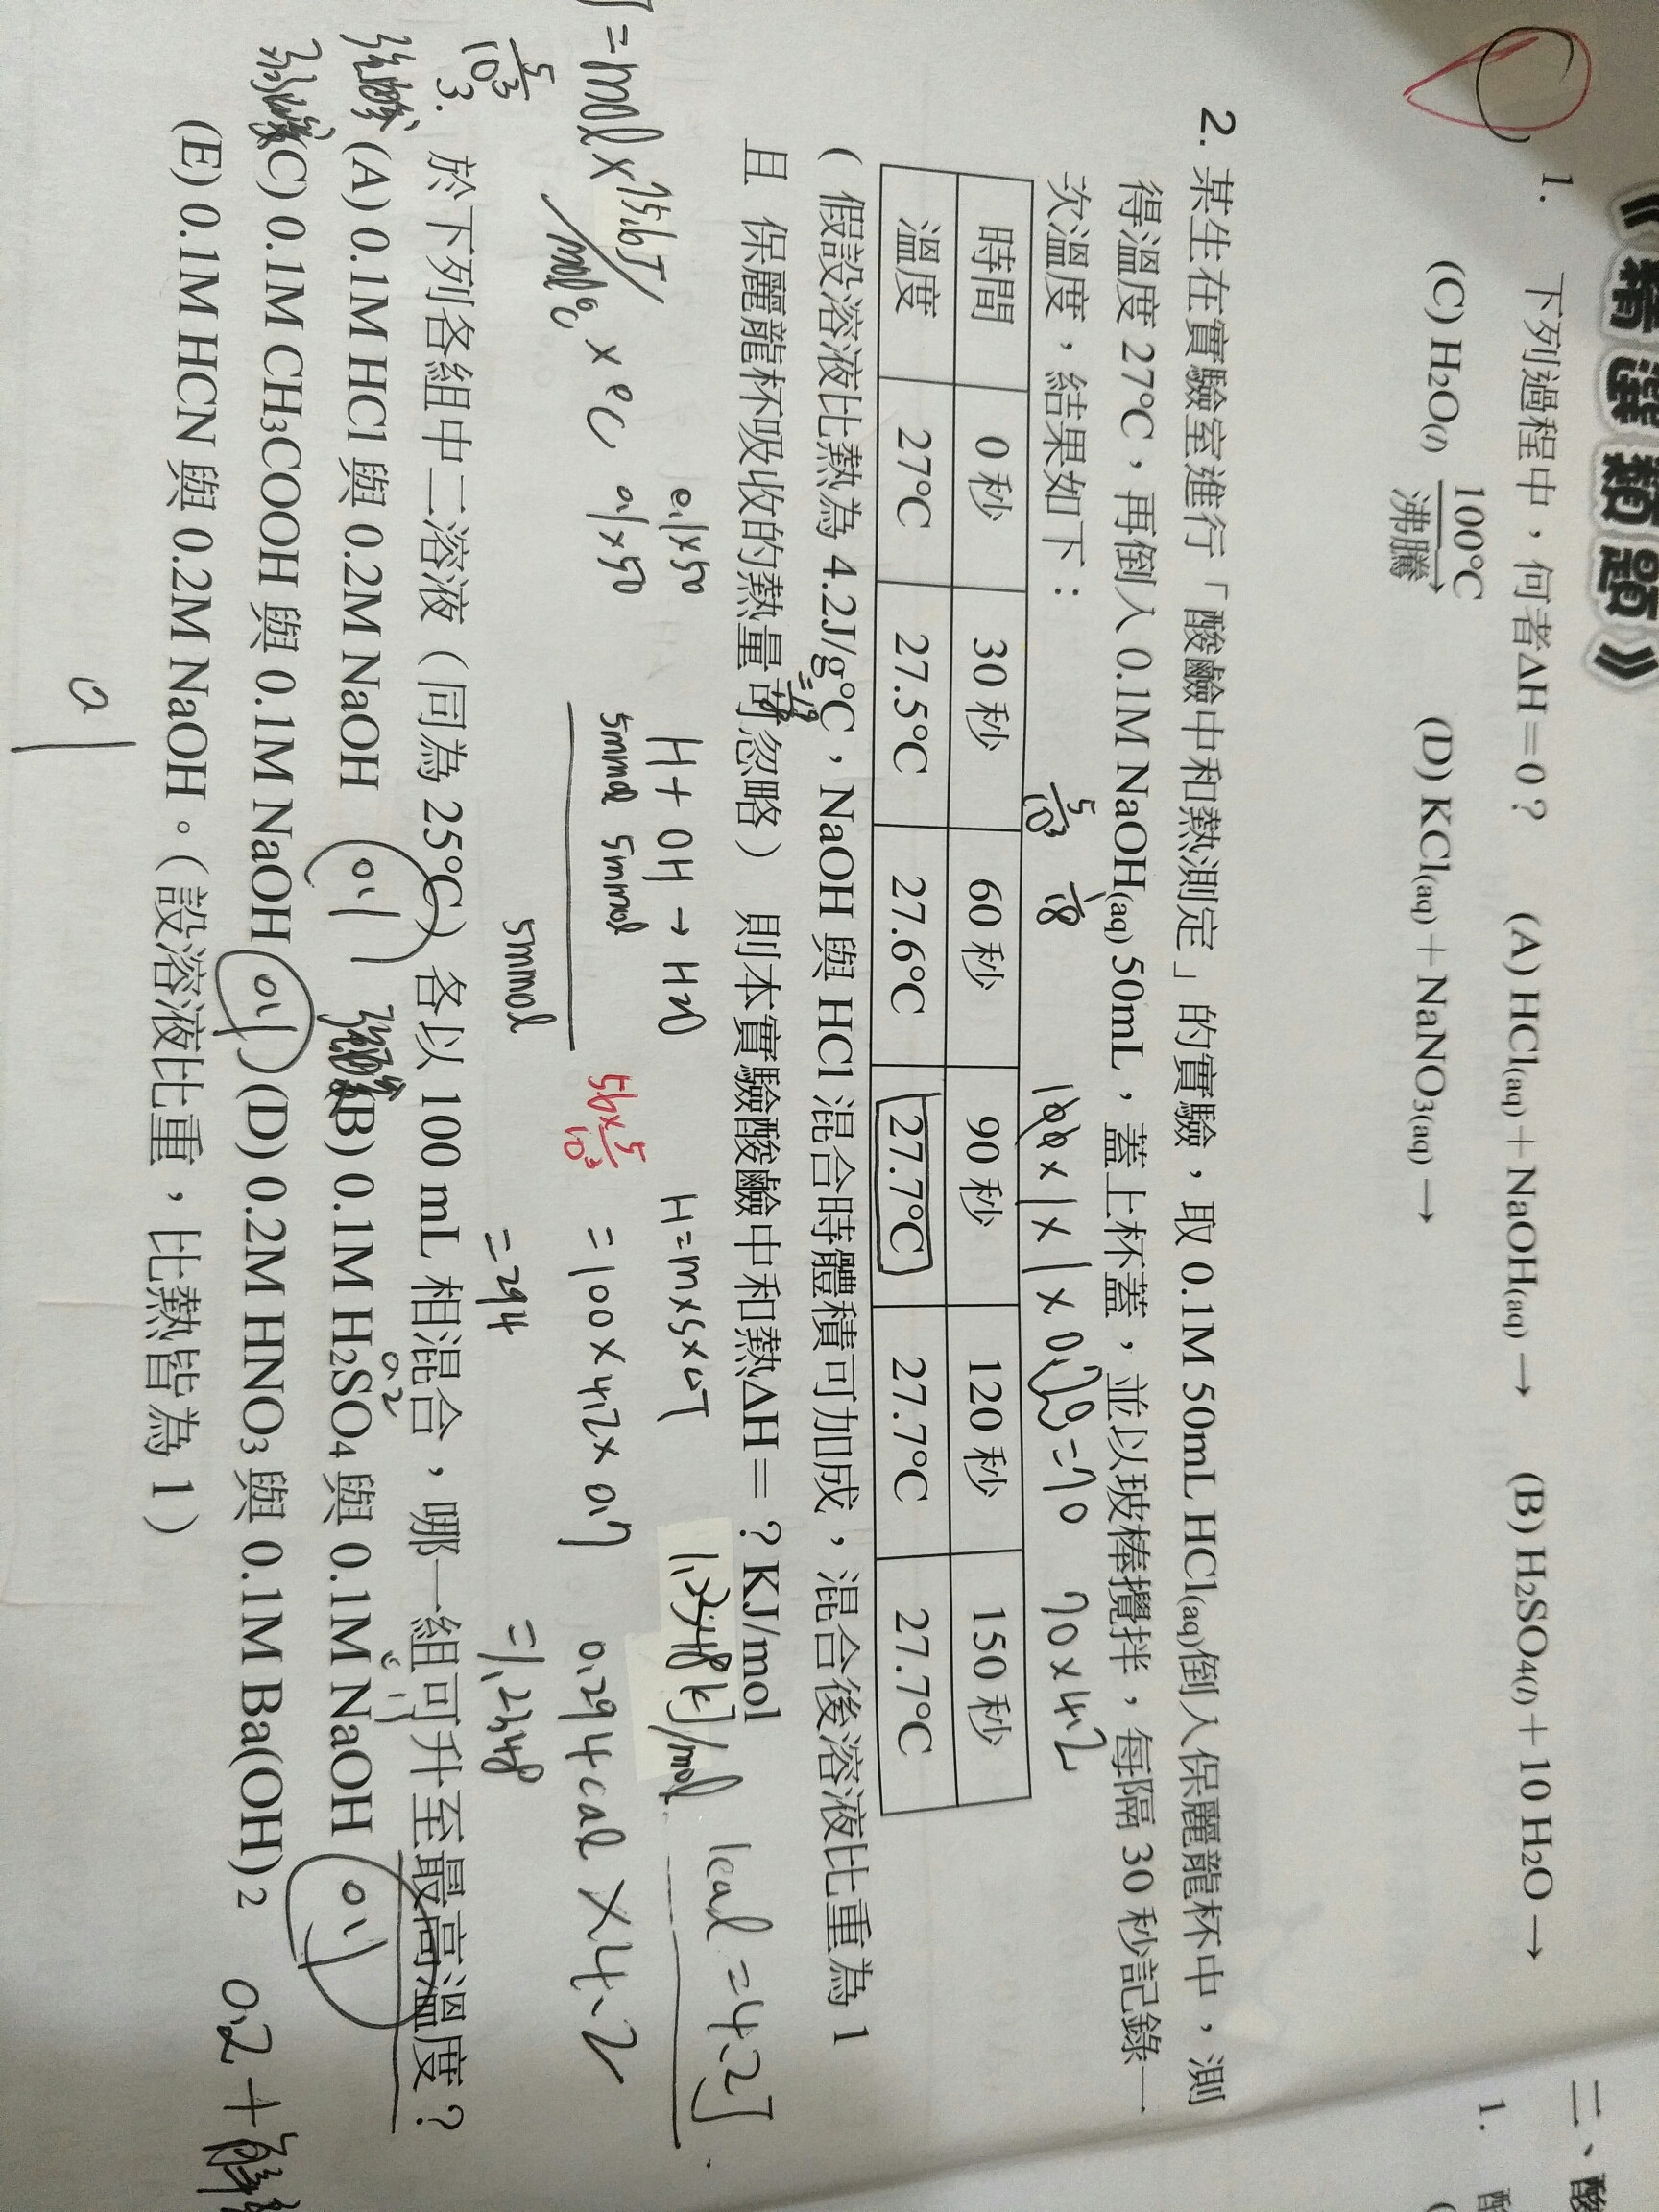 《精選類題》
1. 下列過程中，何者ΔH＝0？ (A) HCl(aq)＋NaOH(aq) → (B) H₂SO₄(l)＋10 H₂O →
(C) H₂O(l) 100°C 沸騰 → (D) KCl(aq)＋NaNO₃(aq) →
2. 某生在實驗室進行「酸鹼中和熱測定」的實驗，取 0.1M 50mL HCl(aq)倒入保麗龍杯中，測
得溫度 27°C，再倒入 0.1M NaOH(aq) 50mL，蓋上杯蓋，並以玻棒攪拌，每隔 30 秒記錄一
次溫度，結果如下：
5/10³ 1/18 100 x 1 x 1 x 0.7 = 70 70 x 4.2
時間 0 秒 30 秒 60 秒 90 秒 120 秒 150 秒
溫度 27°C 27.5°C 27.6°C 27.7°C 27.7°C 27.7°C
( 假設溶液比熱為 4.2J/g°C，NaOH 與 HCl 混合時體積可加成，混合後溶液比重為 1
且 保麗龍杯吸收的熱量可忽略） 則本實驗酸鹼中和熱ΔH＝？KJ/mol
0.1x50 H + OH → H2O H=mxsxΔT 1.2348kJ/mol 1cal = 4.2J
J = mol x 75.6J/mol°C x °C 0.1x50 5mmol 5mmol 56x5/10³ = 100 x 4.2 x 0.7 0.294cal x 4.2
5mmol = 294 = 1.2348
5/10³
3. 於下列各組中二溶液（同為 25°C）各以 100 mL 相混合，哪一組可升至最高溫度？
強酸 (A) 0.1M HCl 與 0.2M NaOH 0.1 (B) 0.1M H₂SO₄ 與 0.1M NaOH 0.1
0.2
(C) 0.1M CH₃COOH 與 0.1M NaOH 0.1 (D) 0.2M HNO₃ 與 0.1M Ba(OH)₂ 0.2
(E) 0.1M HCN 與 0.2M NaOH。（設溶液比重，比熱皆為 1）
0.1
二、酸
1.